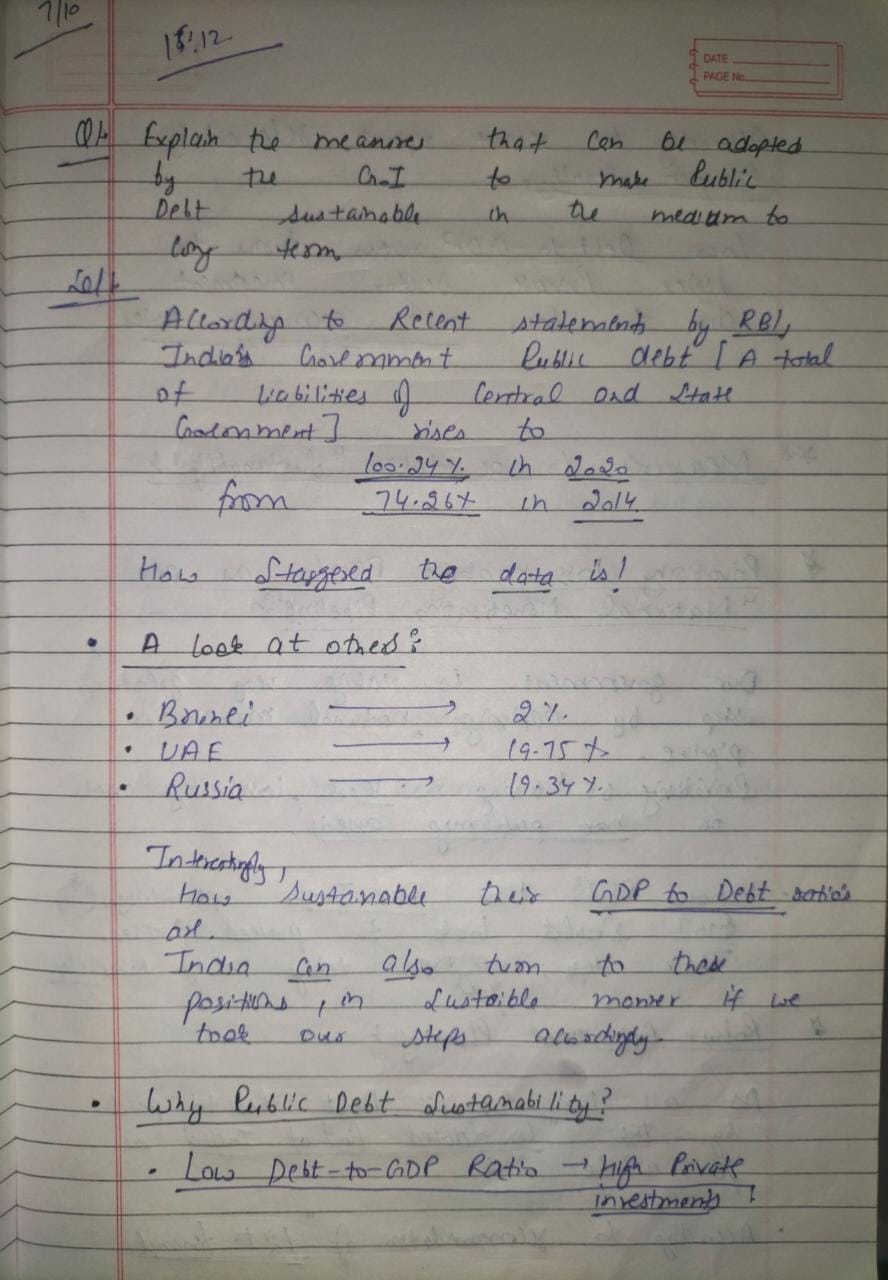 7/10
15.12
DATE
PAGE No.
Q1. Explain the measures that can be adopted
by the GoI to make Public
Debt sustainable in the medium to
long term
Sol.
According to Recent statements by RBI,
India's Government Public debt [A total
of liabilities of Central and State
Government] rises to
100.24% in 2020
from 74.26% in 2014.
How Staggered the data is!
• A look at others:
• Brunei → 2%.
• UAE → 19.75%
• Russia → 19.34%.
Interestingly,
How Sustanable their GDP to Debt ratio's
are.
India can also turn to these
positions, in Sustaible manner if we
took our steps accordingly.
• Why Public Debt Sustainability?
• Low Debt-to-GDP Ratio → High Private
investments!